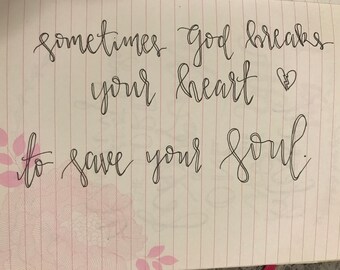 sometimes god breaks
your heart
to save your soul.